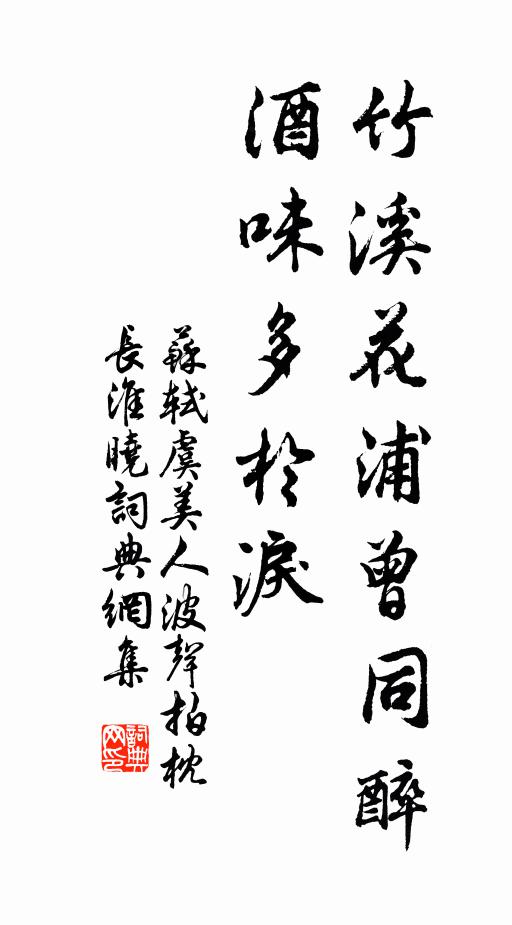 竹溪花浦曾同醉
酒味多於淚
蘇軾虞美人波聲拍枕
長淮曉詞典網集
詞典
网印